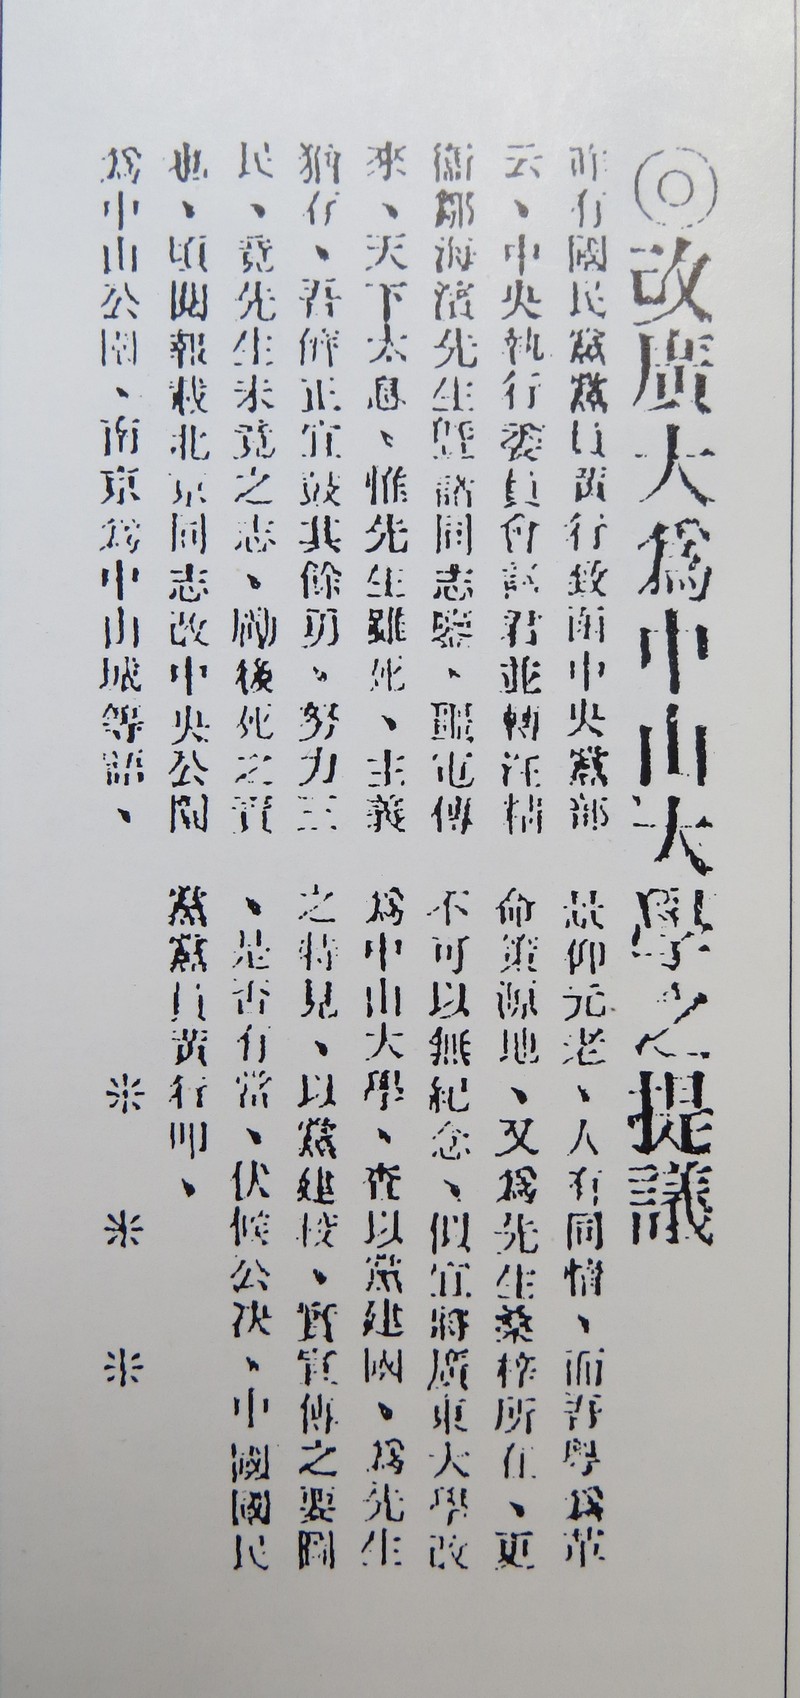 ◎改廣大爲中山大學之提議
昨有國民黨黨員黃行致函中央黨部
云、中央執行委員會諸君並轉汪精
衛鄒海濱先生曁諸同志鑒、噩電傳
來、天下太息、惟先生雖死、主義
猶存、吾儕正宜鼓其餘勇、努力三
民、竟先生未竟之志、勵後死之責
也、頃閱報載北京同志改中央公園
爲中山公園、南京爲中山城等語、
景仰元老、人有同情、而吾粤爲革
命策源地、又爲先生桑梓所在、更
不可以無紀念、似宜將廣東大學改
爲中山大學、查以黨建國、爲先生
之特見、以黨建校、實宣傳之要圖
、是否有當、伏候公决、中國國民
黨黨員黃行叩、